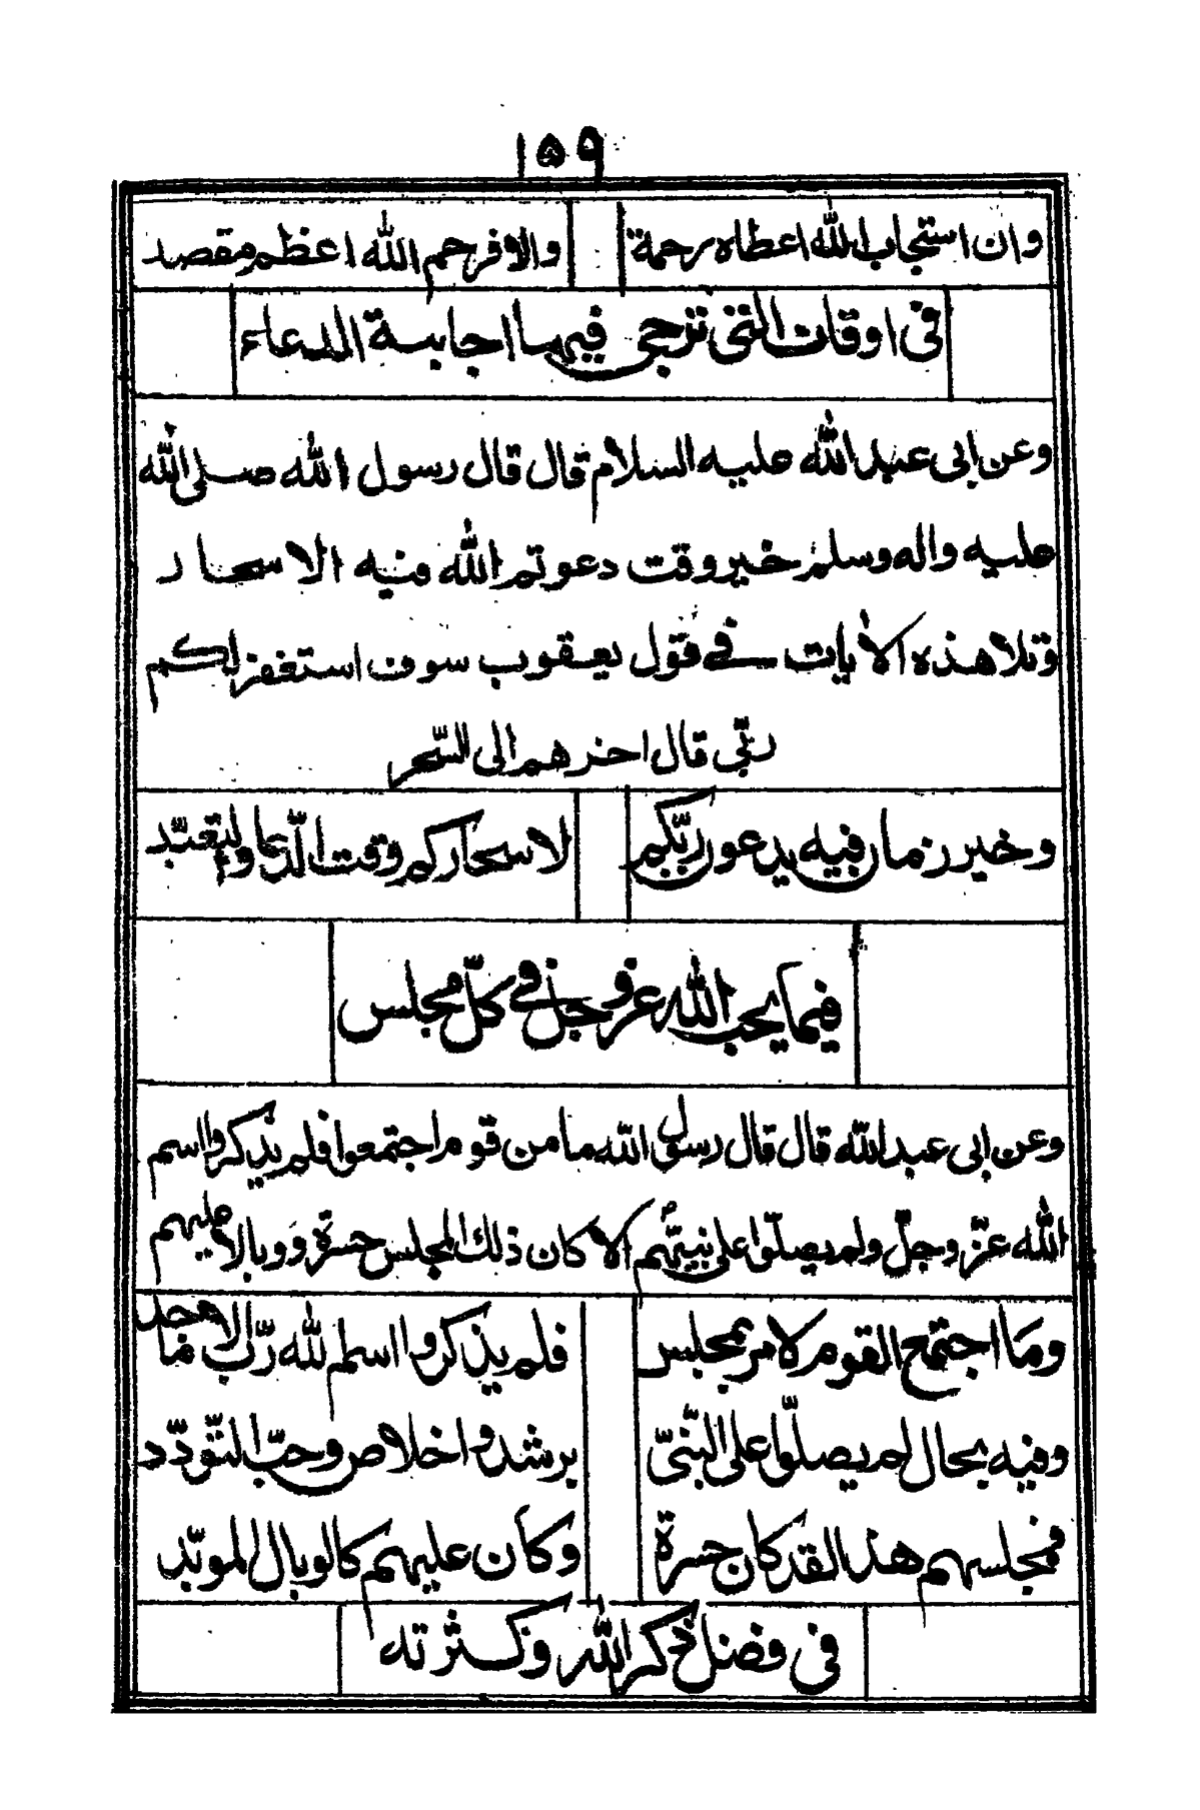 ١٥٩
وان استجاب الله اعطاه رحمة والا فرحم الله اعظم مقصد
فى اوقات التى ترجى فيها اجابة الدعاء
وعن ابى عبد الله عليه السلام قال قال رسول الله صلى الله
عليه واله وسلم خير وقت دعوتم الله فيه الاسحار
وتلا هذه الايات فى قول يعقوب سوف استغفر لكم
ربّى قال اخرهم الى السّحر
وخير زمان فيه يدعون ربّكم لاسحاركم وقت الدّعا ولتعبّد
فيما يحب الله عز وجل فى كلّ مجلس
وعن ابى عبد الله قال قال رسول الله ما من قوم اجتمعوا فلم يذكروا اسم
الله عزّ وجلّ ولم يصلّوا على نبيّهم الا كان ذلك المجلس حسرة ووبالا عليهم
وما اجتمع القوم لامر بمجلس فلم يذكروا اسما لله ربّ الاماجد
وفيه بحال لم يصلّوا على النّبىّ برشد واخلاص وحبّ التّودّد
فمجلسهم هذا لقد كان حسرة وكان عليهم كالوبال الموبّد
فى فضل ذكر الله وكثرته